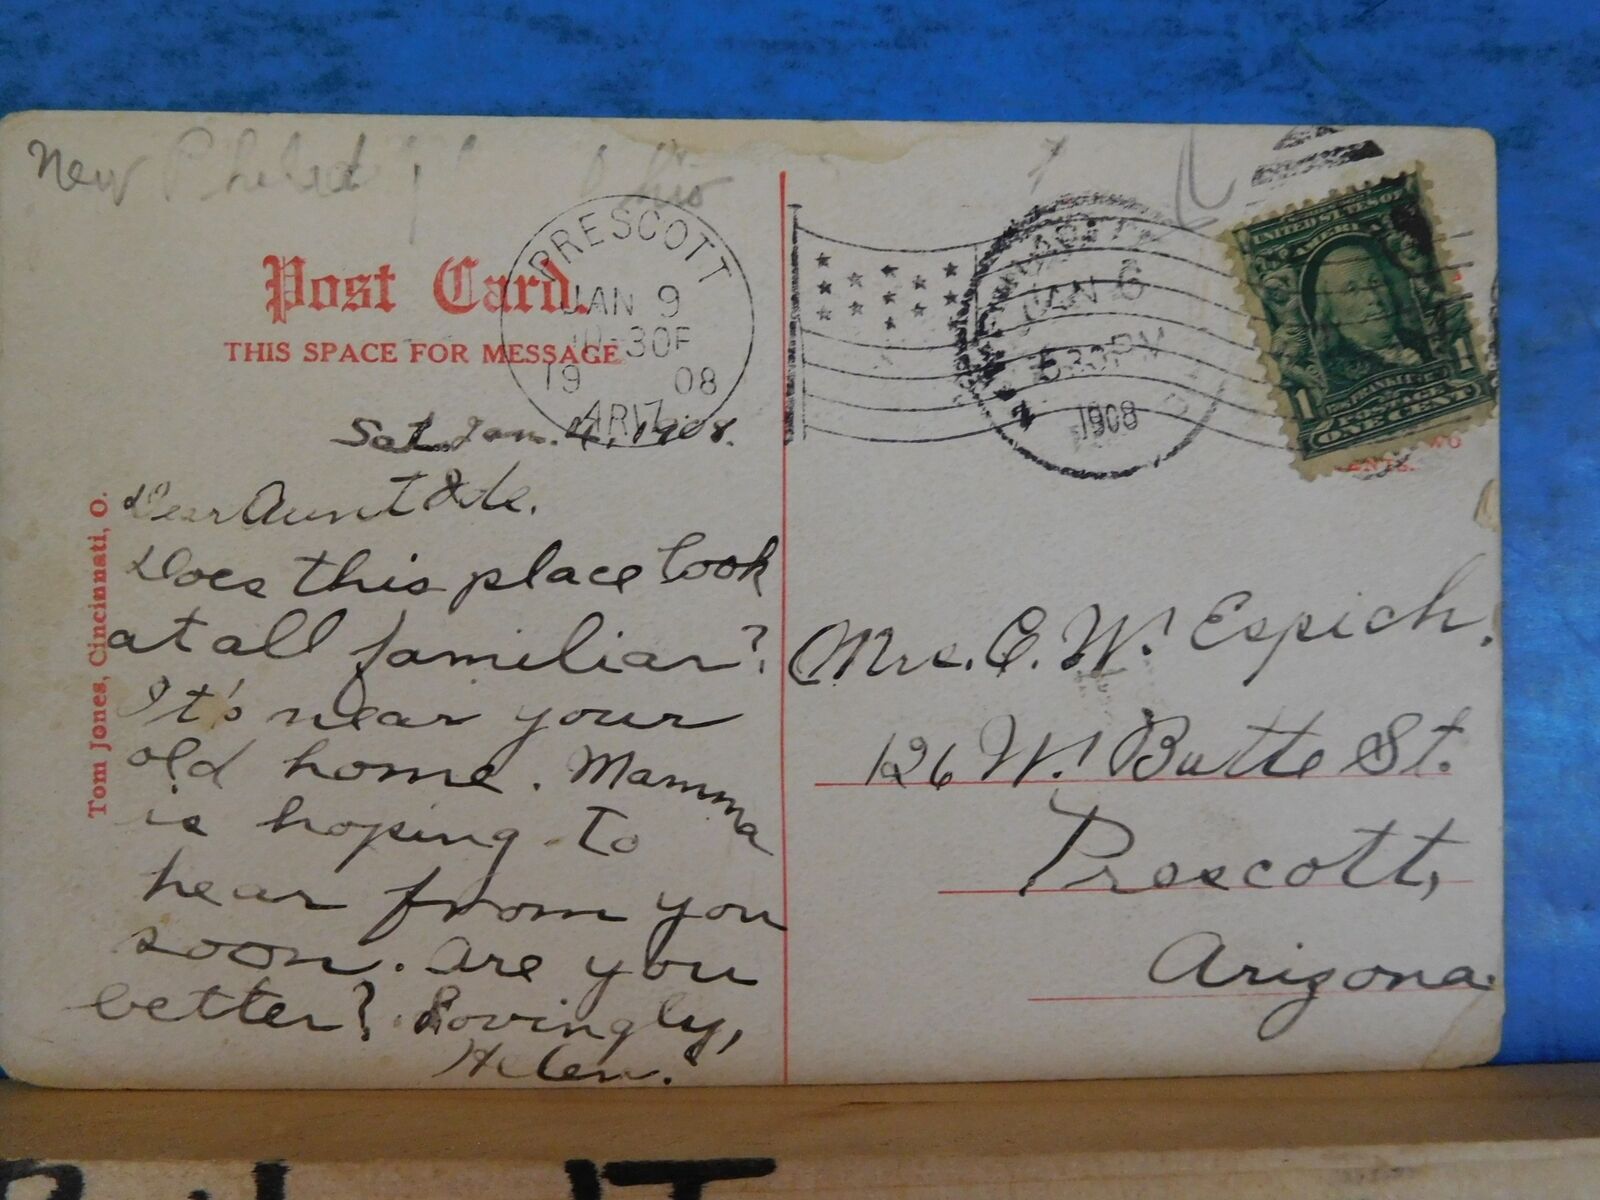 New Philad Ohio
Post Card.
THIS SPACE FOR MESSAGE
PRESCOTT
JAN 9
30P
19 08
ARIZ.
JAN 6
530PM
1908
UNITED STATES OF
AMERICA
1 1
FRANKLIN
POSTAGE
ONE CENT
WO
ENTS.
Tom Jones, Cincinnati, O.
Sat. Jan. 4, 1908.
Dear Aunt
Does this place look
at all familiar?
It's near your
old home. Mamma
is hoping to
hear from you
soon. Are you
better? Lovingly,
Helen.
Mrs. C. W. Espich.
126 W. Butte St.
Prescott,
Arizona.